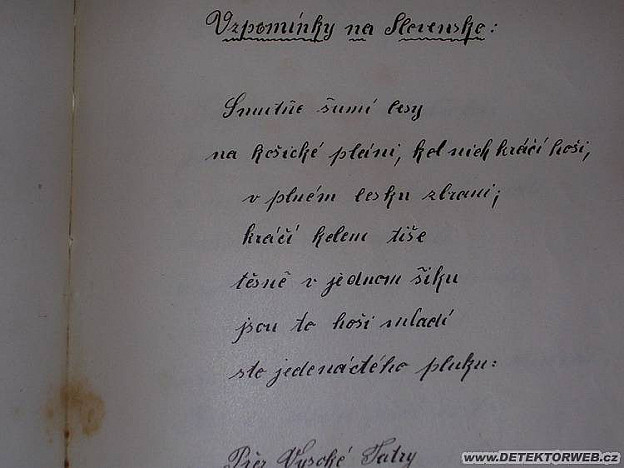 Vzpomínky na Slovensko:
Smutňe šumí lesy
na košické pláni, kol nich kráčí hoši,
v plném lesku zbraní;
kráčí kolem tiše
těsně v jednom šiku
jsou to hoši mladí
sto jedenáctého pluku:
Přez Vysoké Tatry
www.DETEKTORWEB.cz